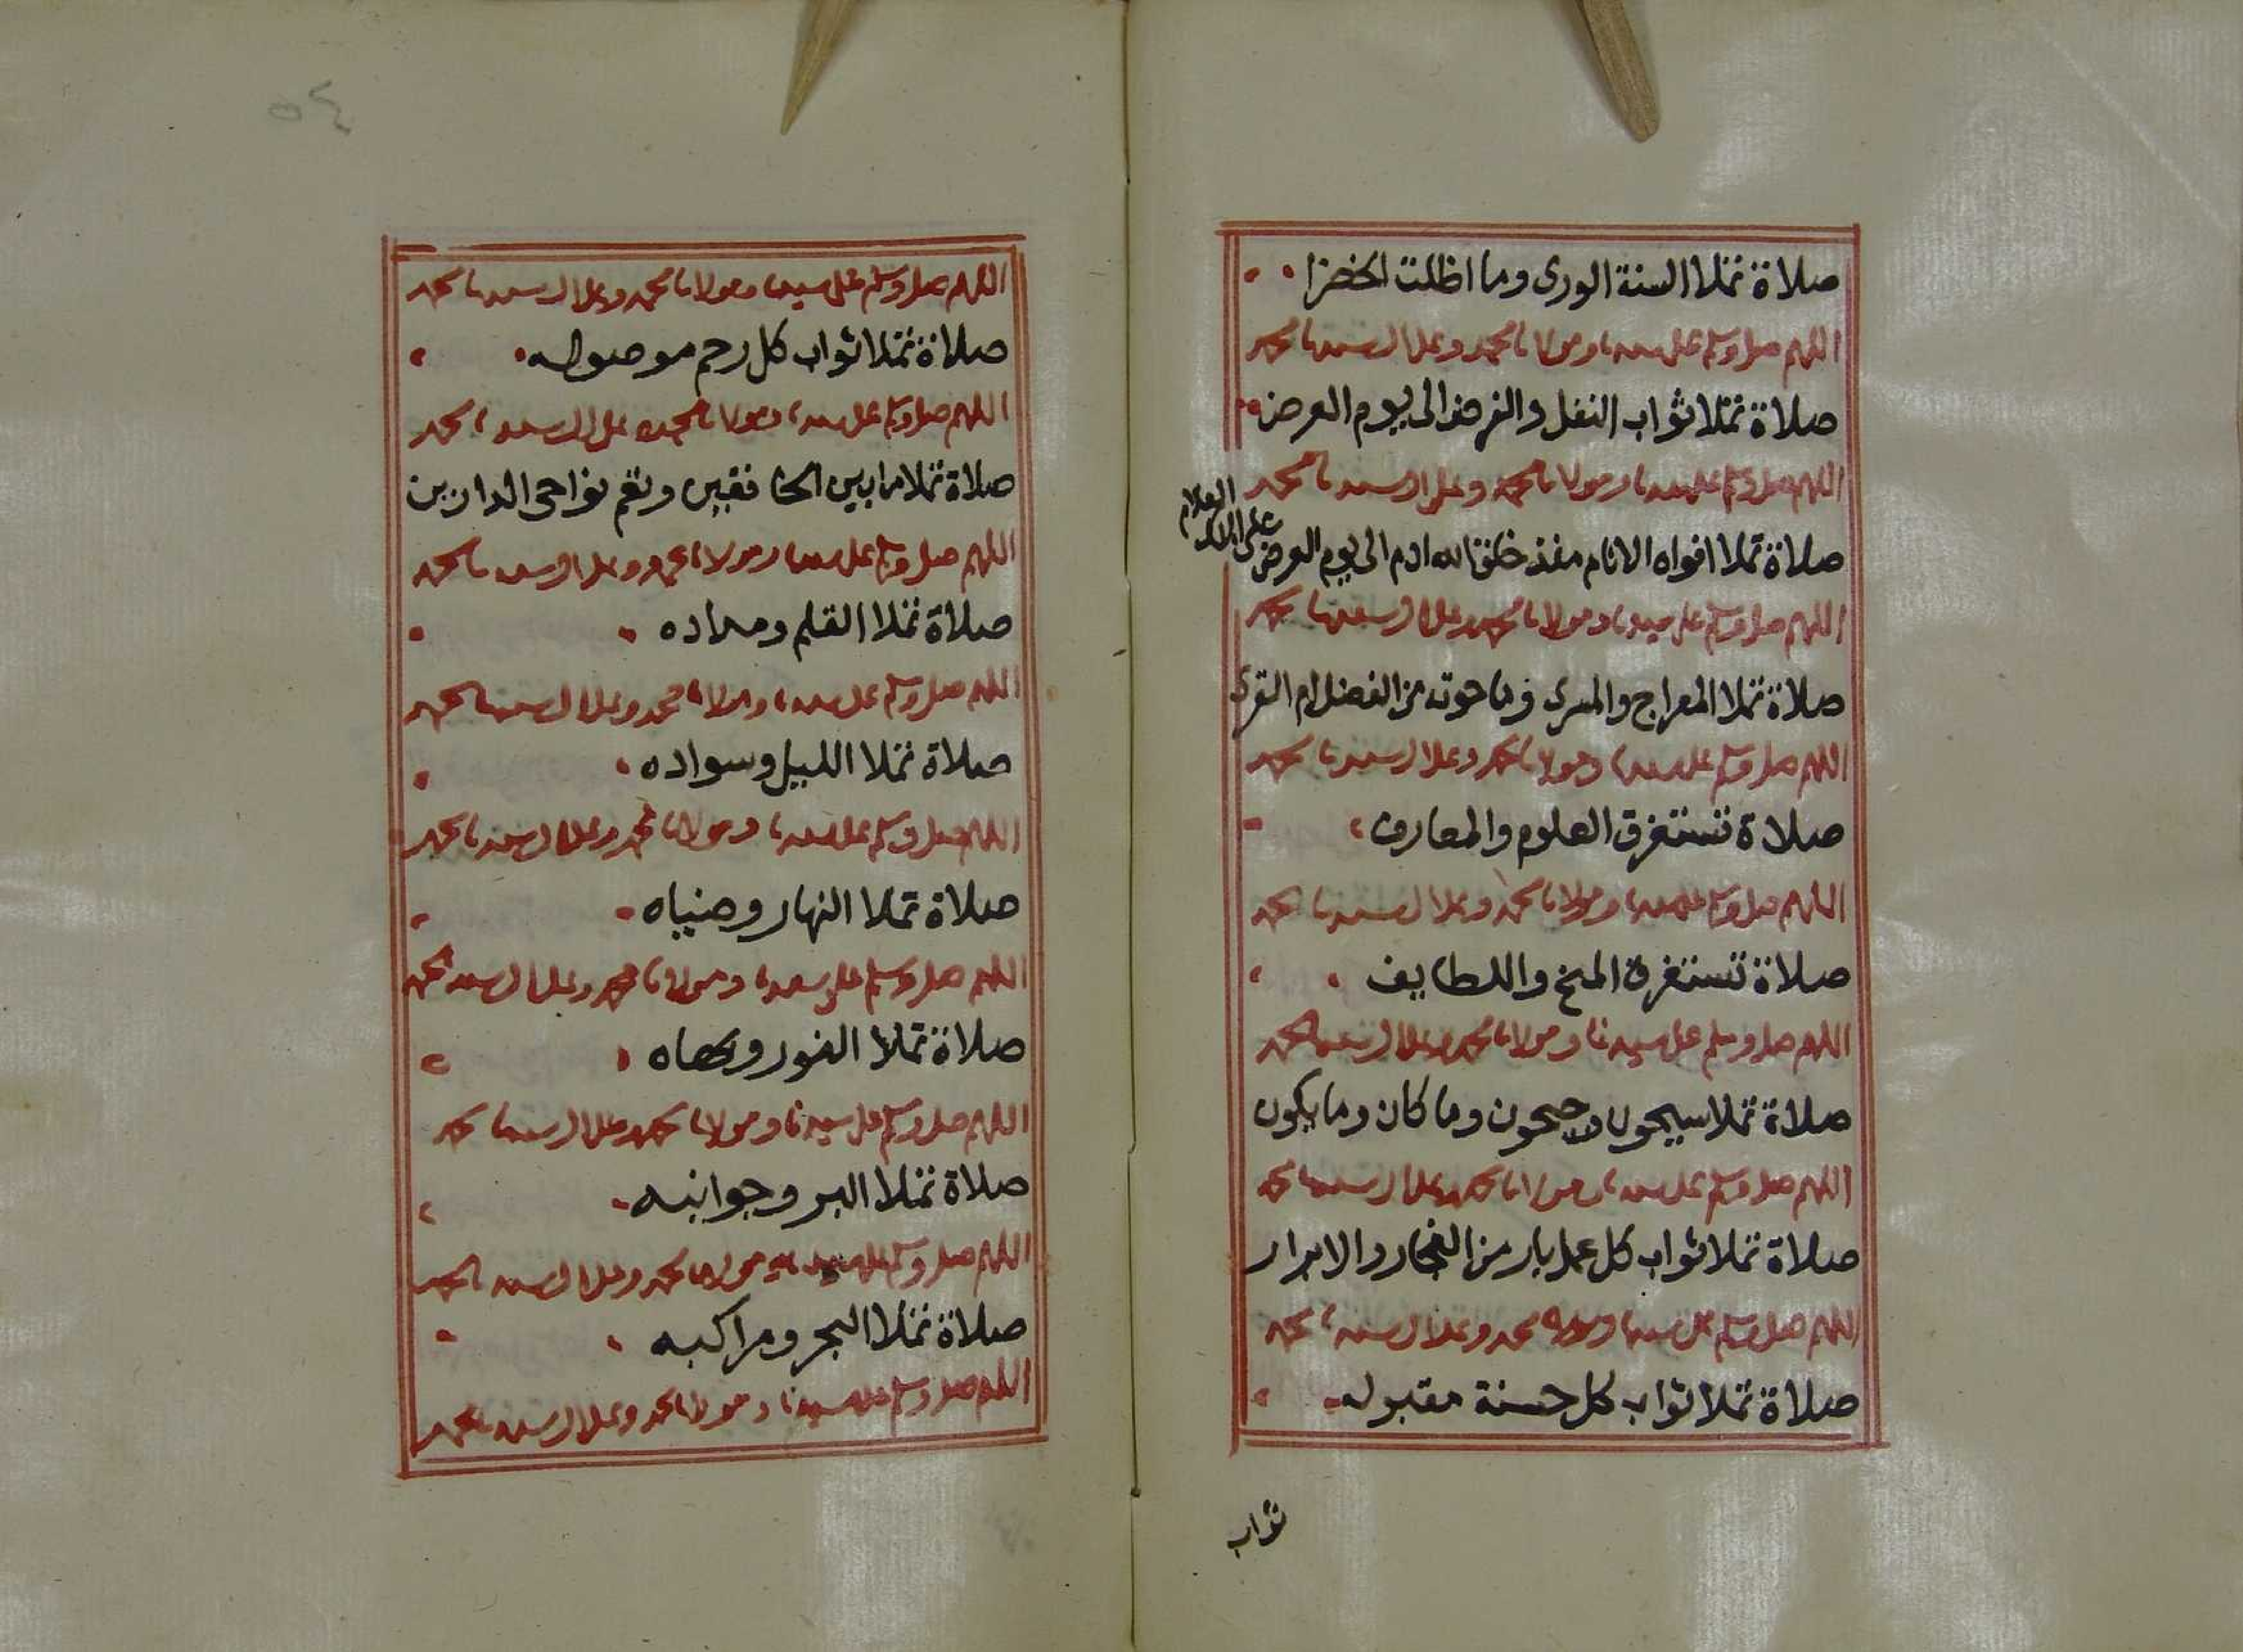 صلاة تملا السنة الورى وما اظلت الخضرا
اللهم صل وسلم على سيدنا ومولانا محمد وعلى ال سيدنا محمد
صلاة تملا ثواب النفل والفرض الى يوم العرض
اللهم صل وسلم على سيدنا ومولانا محمد وعلى ال سيدنا محمد
صلاة تملا افواه الانام منذ خلق الله ادم الى يوم العرض على الملك العلام
اللهم صل وسلم على سيدنا ومولانا محمد وعلى ال سيدنا محمد
صلاة تملا المعراج والمسرى وما حوته من الفضل ام القرى
اللهم صل وسلم على سيدنا ومولانا محمد وعلى ال سيدنا محمد
صلاة تستغرق العلوم والمعارف
اللهم صل وسلم على سيدنا ومولانا محمد وعلى ال سيدنا محمد
صلاة تستغرق المنح واللطايف
اللهم صل وسلم على سيدنا ومولانا محمد وعلى ال سيدنا محمد
صلاة تملا سيحون وجيحون وما كان وما يكون
اللهم صل وسلم على سيدنا ومولانا محمد وعلى ال سيدنا محمد
صلاة تملا ثواب كل عمل بار من الفجار والابرار
اللهم صل وسلم على سيدنا ومولانا محمد وعلى ال سيدنا محمد
صلاة تملا ثواب كل حسنة مقبوله
ثواب
٥٤
اللهم صل وسلم على سيدنا ومولانا محمد وعلى ال سيدنا محمد
صلاة تملا ثواب كل رحم موصوله
اللهم صل وسلم على سيدنا ومولانا محمد وعلى ال سيدنا محمد
صلاة تملا ما بين الخافقين وتعم نواحى الدارين
اللهم صل وسلم على سيدنا ومولانا محمد وعلى ال سيدنا محمد
صلاة تملا القلم ومداده
اللهم صل وسلم على سيدنا ومولانا محمد وعلى ال سيدنا محمد
صلاة تملا الليل وسواده
اللهم صل وسلم على سيدنا ومولانا محمد وعلى ال سيدنا محمد
صلاة تملا النهار وضياه
اللهم صل وسلم على سيدنا ومولانا محمد وعلى ال سيدنا محمد
صلاة تملا النور وبهاه
اللهم صل وسلم على سيدنا ومولانا محمد وعلى ال سيدنا محمد
صلاة تملا البر وجوانبه
اللهم صل وسلم على سيدنا ومولانا محمد وعلى ال سيدنا محمد
صلاة تملا البحر ومراكبه
اللهم صل وسلم على سيدنا ومولانا محمد وعلى ال سيدنا محمد